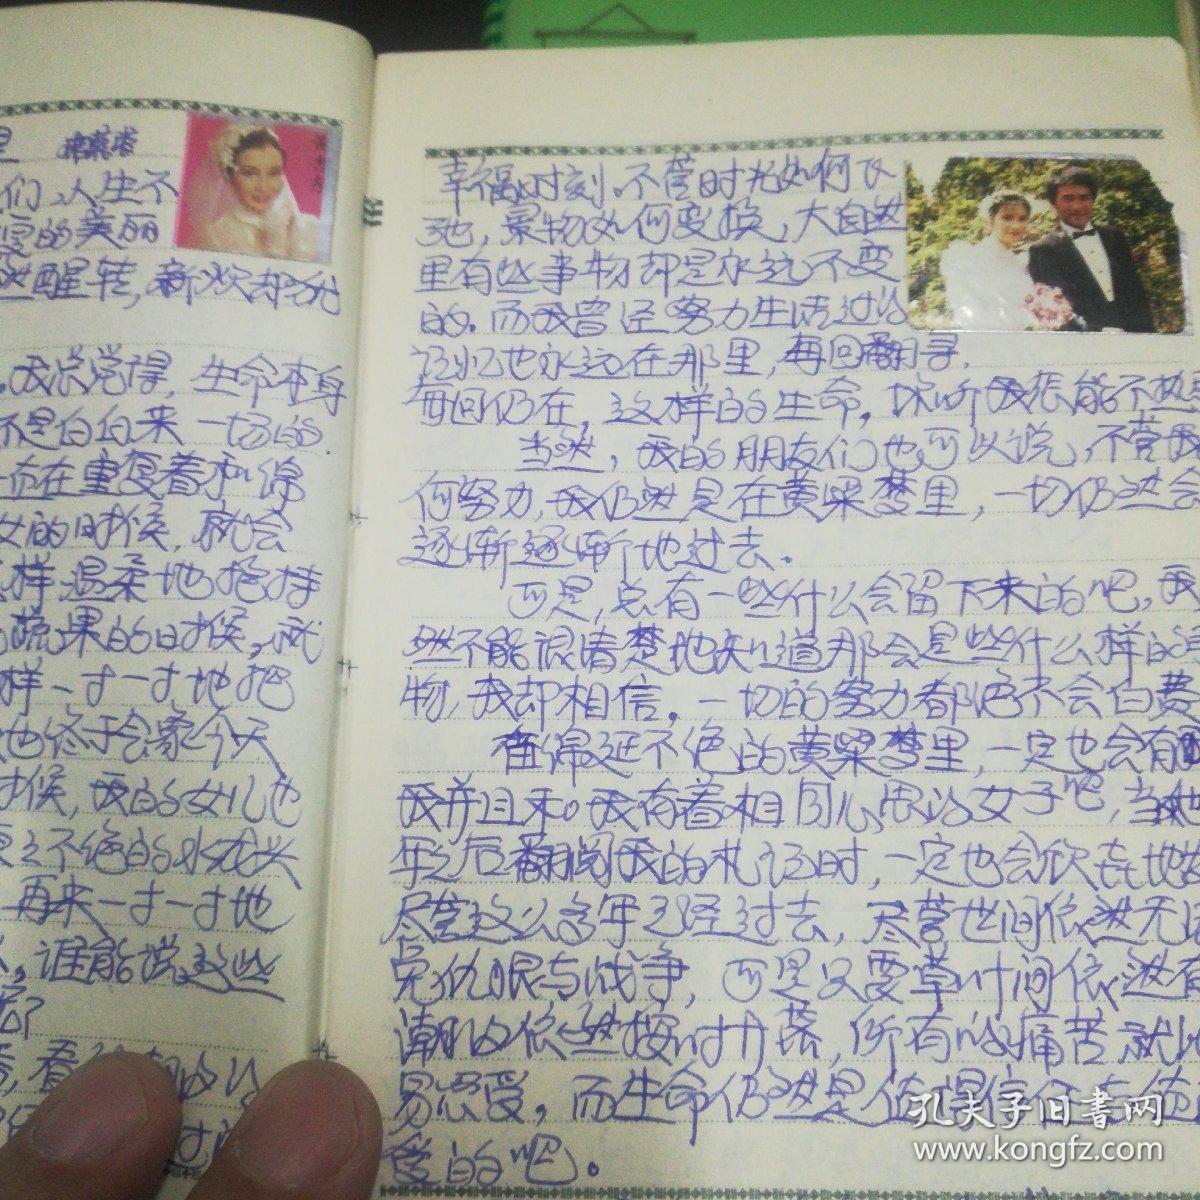 里 席慕蓉
们,人生不
的美丽
醒转,
我总觉得,生命本身
不是白白来一场的.
在重复着和
女的时候,就会
样温柔地抱持
蔬果的时候,就
样一寸一寸地把
也终于会象今天
时候,我的女儿也
不绝的水龙头
再来一寸一寸地
,谁能说这些
幸福时刻.不管时光如何飞
驰,景物如何变换,大自然
里有些事物却是永远不变
的.而我曾经努力生活过的
记忆也永远在那里,每回翻寻,
每回仍在,这样的生命,
当然,我的朋友们也可以说,不管我
何努力,我仍然是在黄粱梦里,一切仍然会
逐渐逐渐地过去.
可是,总有一些什么会留下来的吧,我
然不能很清楚地知道那会是些什么样的
物,我却相信,一切的努力都绝不会白费
在绵延不绝的黄粱梦里,一定也会有
我并且和我有着相同心思的女子吧,当她
年之后翻阅我的札记时,一定也会欣喜地发
尽管这么多年已经过去,尽管世间依然无法
免仇恨与战争,可是只要草叶间依然有
潮汐依然按时升落,所有的痛苦就比
易忍受,而生命仍然是值得信任与值
爱的吧。
孔夫子旧书网
www.kongfz.com